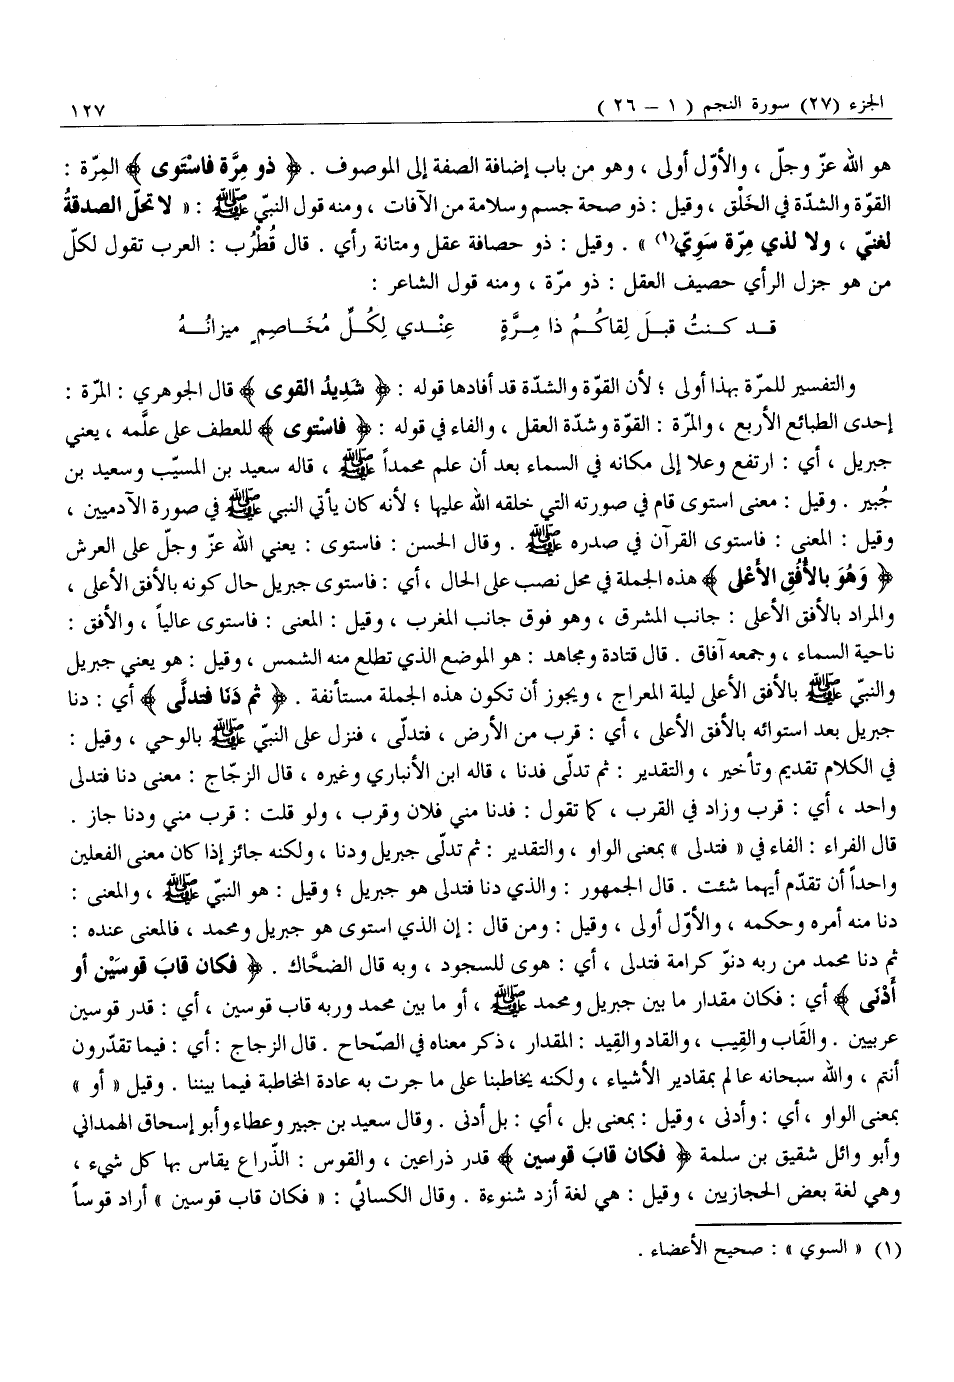 الجزء (٢٧) سورة النجم ( ١ – ٢٦ ) ١٢٧
هو الله عزّ وجلّ ، والأوّل أولى ، وهو من باب إضافة الصفة إلى الموصوف . ﴿ ذو مِرَّة فاسْتَوى ﴾ المِرّة :
القوّة والشدّة في الخَلْق ، وقيل : ذو صحة جسم وسلامة من الآفات ، ومنه قول النبيّ ﷺ : « لا تحلّ الصدقةُ
لغنيّ ، ولا لذي مِرّة سَوِيّ(١) » . وقيل : ذو حصافة عقل ومتانة رأي . قال قُطْرُب : العرب تقول لكلّ
من هو جزل الرأي حصيف العقل : ذو مرّة ، ومنه قول الشاعر :
قـد كنـتُ قبلَ لِقاكُـمُ ذا مِـرَّةٍ عِنْـدي لِكُلِّ مُخَاصِمٍ ميزانُـهُ
والتفسير للمرّة بهذا أولى ؛ لأن القوّة والشدّة قد أفادها قوله : ﴿ شَدِيدُ القوى ﴾ قال الجوهري : المرّة :
إحدى الطبائع الأربع ، والمرّة : القوّة وشدّة العقل ، والفاء في قوله : ﴿ فاسْتوى ﴾ للعطف على علَّمه ، يعني
جبريل ، أي : ارتفع وعلا إلى مكانه في السماء بعد أن علم محمداً ﷺ ، قاله سعيد بن المسيّب وسعيد بن
جُبير . وقيل : معنى استوى قام في صورته التي خلقه الله عليها ؛ لأنه كان يأتي النبي ﷺ في صورة الآدميين ،
وقيل : المعنى : فاستوى القرآن في صدره ﷺ . وقال الحسن : فاستوى : يعني الله عزّ وجلّ على العرش
﴿ وَهُوَ بالأُفُقِ الأَعْلى ﴾ هذه الجملة في محل نصب على الحال ، أي : فاستوى جبريل حال كونه بالأفق الأعلى ،
والمراد بالأفق الأعلى : جانب المشرق ، وهو فوق جانب المغرب ، وقيل : المعنى : فاستوى عالياً ، والأفق :
ناحية السماء ، وجمعه آفاق . قال قتادة ومجاهد : هو الموضع الذي تطلع منه الشمس ، وقيل : هو يعني جبريل
والنبيّ ﷺ بالأفق الأعلى ليلة المعراج ، ويجوز أن تكون هذه الجملة مستأنفة . ﴿ ثم دَنَا فتدلَّى ﴾ أي : دنا
جبريل بعد استوائه بالأفق الأعلى ، أي : قرب من الأرض ، فتدلّى ، فنزل على النبيّ ﷺ بالوحي ، وقيل :
في الكلام تقديم وتأخير ، والتقدير : ثم تدلّى فدنا ، قاله ابن الأنباري وغيره ، قال الزجّاج : معنى دنا فتدلى
واحد ، أي : قرب وزاد في القرب ، كما تقول : فدنا مني فلان وقرب ، ولو قلت : قرب مني ودنا جاز .
قال الفراء : الفاء في « فتدلى » بمعنى الواو ، والتقدير : ثم تدلّى جبريل ودنا ، ولكنه جائز إذا كان معنى الفعلين
واحداً أن تقدّم أيهما شئت . قال الجمهور : والذي دنا فتدلى هو جبريل ؛ وقيل : هو النبيّ ﷺ ، والمعنى :
دنا منه أمره وحكمه ، والأوّل أولى ، وقيل : ومن قال : إن الذي استوى هو جبريل ومحمد ، فالمعنى عنده :
ثم دنا محمد من ربه دنوّ كرامة فتدلى ، أي : هوى للسجود ، وبه قال الضحَّاك . ﴿ فكان قابَ قوسَيْن أو
أَدْنَى ﴾ أي : فكان مقدار ما بين جبريل ومحمد ﷺ ، أو ما بين محمد وربه قاب قوسين ، أي : قدر قوسين
عربيين . والقَاب والقِيب ، والقاد والقِيد : المقدار ، ذكر معناه في الصّحاح . قال الزجاج : أي : فيما تقدّرون
أنتم ، والله سبحانه عالم بمقادير الأشياء ، ولكنه يخاطبنا على ما جرت به عادة المخاطبة فيما بيننا . وقيل « أو »
بمعنى الواو ، أي : وأدنى ، وقيل : بمعنى بل ، أي : بل أدنى . وقال سعيد بن جبير وعطاء وأبو إسحاق الهمداني
وأبو وائل شقيق بن سلمة ﴿ فكان قابَ قوسين ﴾ قدر ذراعين ، والقوس : الذّراع يقاس بها كل شيء ،
وهي لغة بعض الحجازيين ، وقيل : هي لغة أزد شنوءة . وقال الكسائي : « فكان قاب قوسين » أراد قوساً
(١) « السوي » : صحيح الأعضاء .